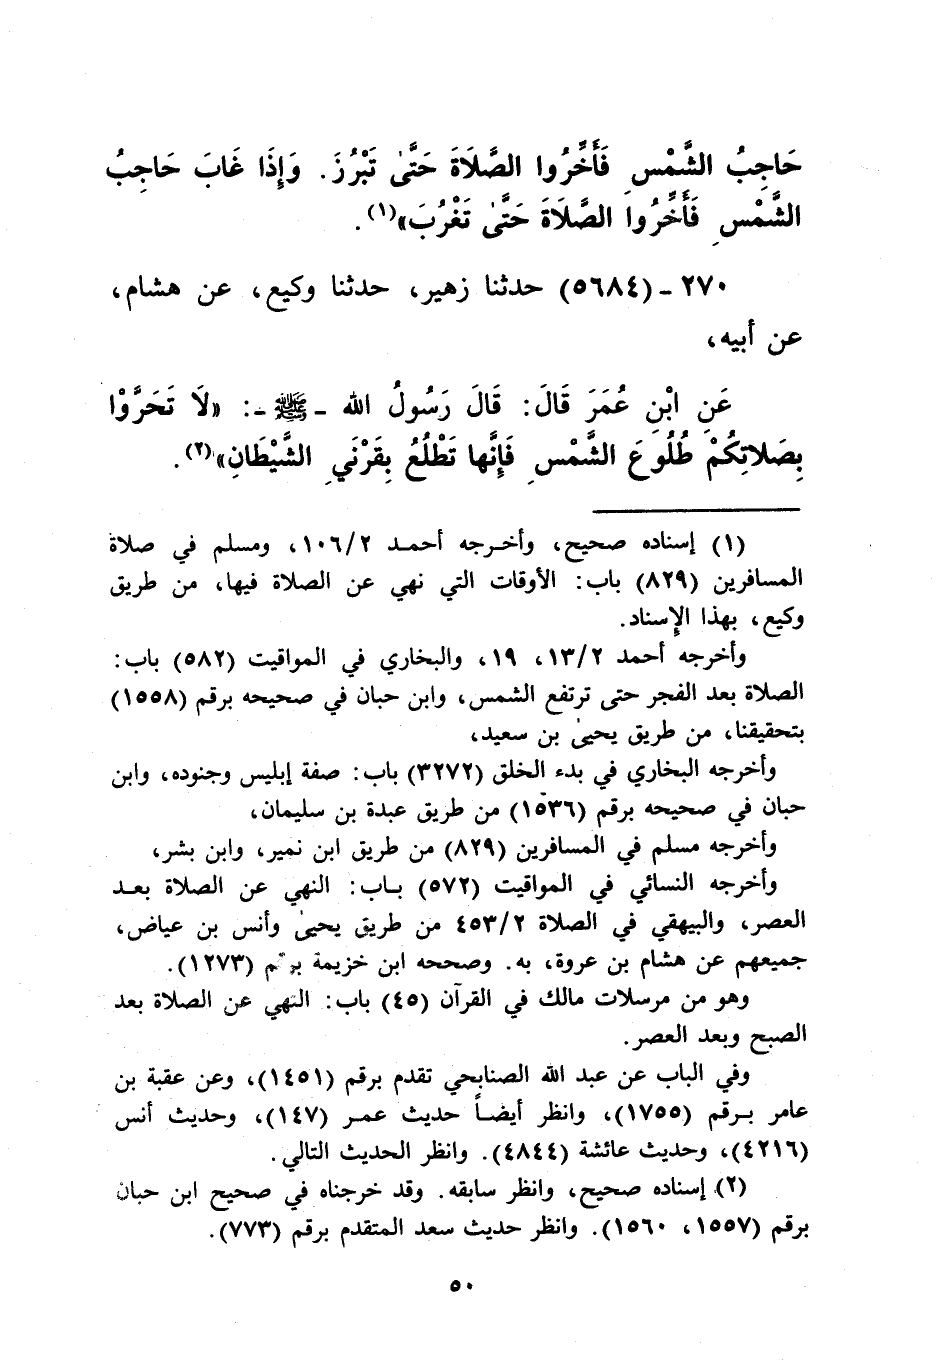 حَاجِبُ الشَّمْسِ فَأَخِّرُوا الصَّلَاةَ حَتَّىٰ تَبْرُزَ. وَإِذَا غَابَ حَاجِبُ
الشَّمْسِ فَأَخِّرُوا الصَّلَاةَ حَتَّىٰ تَغْرُبَ»(١).
٢٧٠ - (٥٦٨٤) حدثنا زهير، حدثنا وكيع، عن هشام،
عن أبيه،
عَنِ ابْنِ عُمَرَ قَالَ: قَالَ رَسُولُ الله - ﷺ -: «لَا تَحَرَّوْا
بِصَلاتِكُمْ طُلُوعَ الشَّمْسِ فَإِنَّها تَطْلُعُ بِقَرْنَيِ الشَّيْطَانِ»(٢).
(١) إسناده صحيح، وأخرجه أحمد ١٠٦/٢، ومسلم في صلاة
المسافرين (٨٢٩) باب: الأوقات التي نهي عن الصلاة فيها، من طريق
وكيع، بهذا الإسناد.
وأخرجه أحمد ١٣/٢، ١٩، والبخاري في المواقيت (٥٨٢) باب:
الصلاة بعد الفجر حتى ترتفع الشمس، وابن حبان في صحيحه برقم (١٥٥٨)
بتحقيقنا، من طريق يحيىٰ بن سعيد،
وأخرجه البخاري في بدء الخلق (٣٢٧٢) باب: صفة إبليس وجنوده، وابن
حبان في صحيحه برقم (١٥٣٦) من طريق عبدة بن سليمان،
وأخرجه مسلم في المسافرين (٨٢٩) من طريق ابن نمير، وابن بشر،
وأخرجه النسائي في المواقيت (٥٧٢) باب: النهي عن الصلاة بعد
العصر، والبيهقي في الصلاة ٤٥٣/٢ من طريق يحيىٰ وأنس بن عياض،
جميعهم عن هشام بن عروة، به. وصححه ابن خزيمة برقم (١٢٧٣).
وهو من مرسلات مالك في القرآن (٤٥) باب: النهي عن الصلاة بعد
الصبح وبعد العصر.
وفي الباب عن عبد الله الصنابحي تقدم برقم (١٤٥١)، وعن عقبة بن
عامر برقم (١٧٥٥)، وانظر أيضاً حديث عمر (١٤٧)، وحديث أنس
(٤٢١٦)، وحديث عائشة (٤٨٤٤). وانظر الحديث التالي.
(٢) إسناده صحيح، وانظر سابقه. وقد خرجناه في صحيح ابن حبان
برقم (١٥٥٧، ١٥٦٠). وانظر حديث سعد المتقدم برقم (٧٧٣).
٥٠